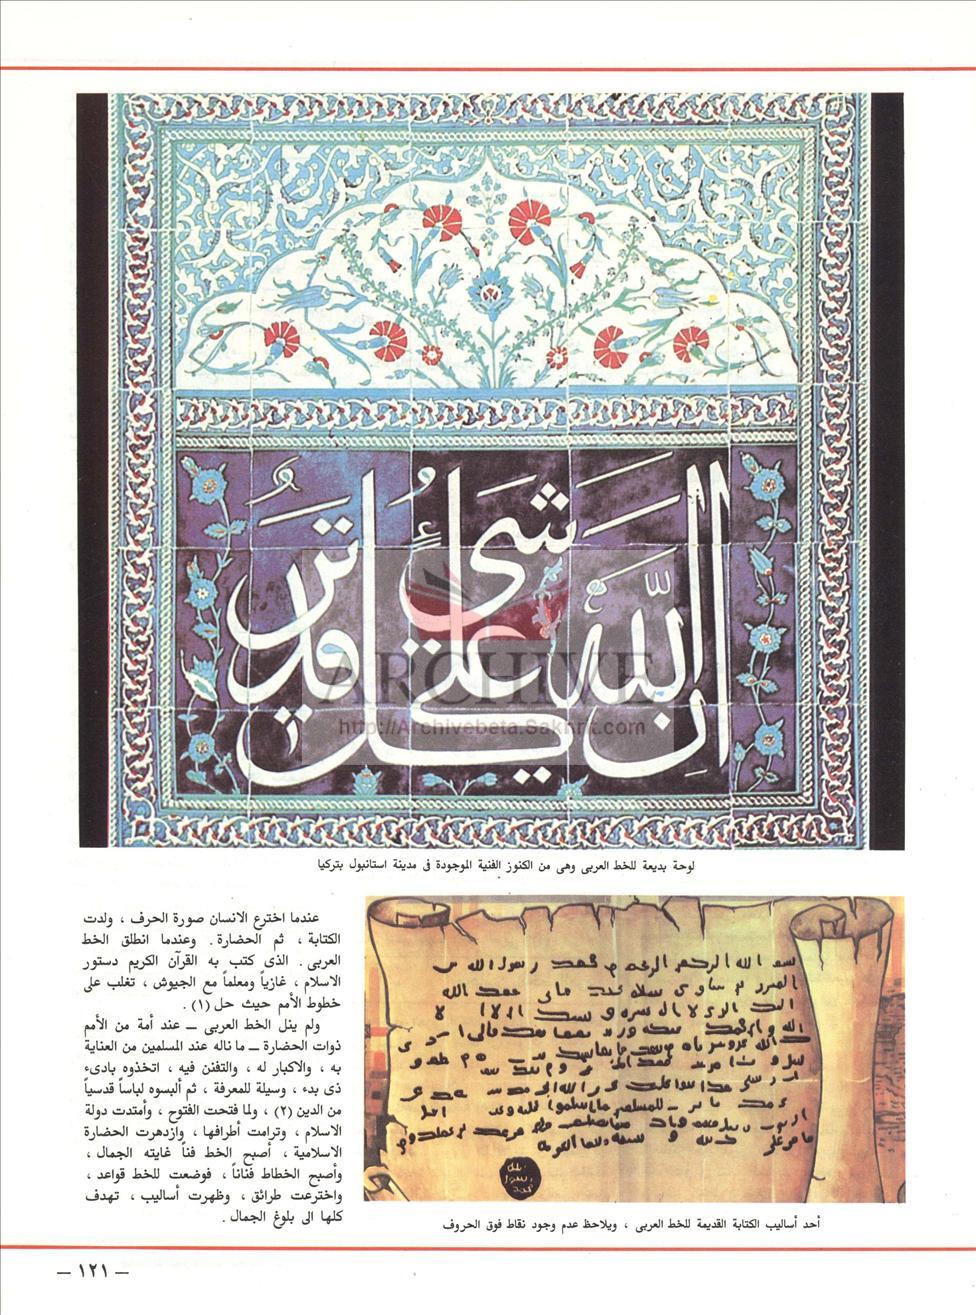 ان الله على كل شىء قدير
ARCHIVE
http://Archivebeta.Sakhrit.com
لوحة بديعة للخط العربى وهى من الكنوز الفنية الموجودة فى مدينة استانبول بتركيا
عندما اخترع الانسان صورة الحرف ، ولدت
الكتابة ، ثم الحضارة . وعندما انطلق الخط
العربى . الذى كتب به القرآن الكريم دستور
الاسلام ، غازياً ومعلماً مع الجيوش ، تغلب على
خطوط الأمم حيث حل (١) .
ولم ينل الخط العربى ــ عند أمة من الأمم
ذوات الحضارة ــ ما ناله عند المسلمين من العناية
به ، والاكبار له ، والتفنن فيه ، اتخذوه بادىء
ذى بدء ، وسيلة للمعرفة ، ثم ألبسوه لباساً قدسياً
من الدين (٢) ، ولما فتحت الفتوح ، وأمتدت دولة
الاسلام ، وترامت أطرافها ، وازدهرت الحضارة
الاسلامية ، أصبح الخط فناً غايته الجمال ،
وأصبح الخطاط فناناً ، فوضعت للخط قواعد ،
واخترعت طرائق ، وظهرت أساليب ، تهدف
كلها الى بلوغ الجمال .
بسم الله الرحمن الرحيم من محمد رسول الله
الله
رسول
محمد
أحد أساليب الكتابة القديمة للخط العربى ، ويلاحظ عدم وجود نقاط فوق الحروف
— ١٢١ —